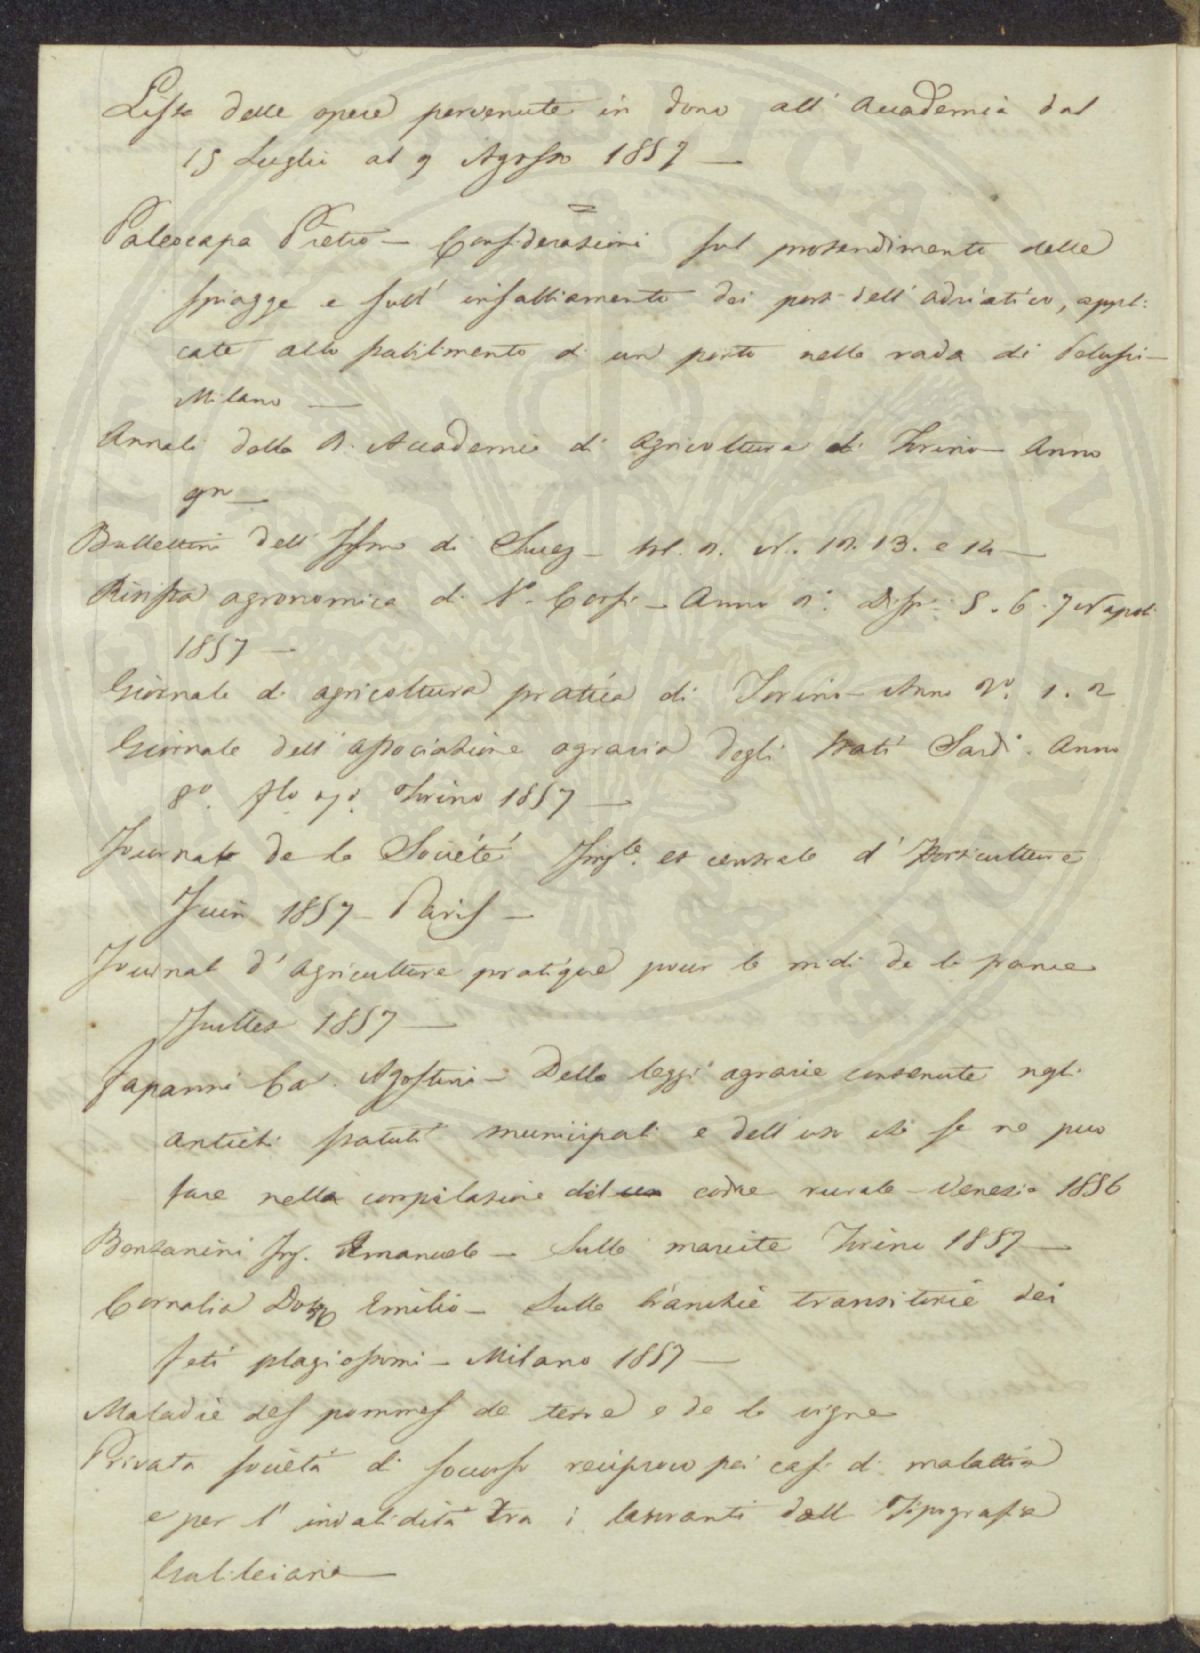 Lista delle opere pervenute in dono all' Accademia dal
15 Luglio al 9 Agosto 1857 —
Paleocapa Pietro — Considerazioni sul protendimento delle
spiagge e sull' insabbiamento dei porti dell' Adriatico, appli:
cate allo stabilimento di un porto nella rada di Pelusi —
Milano —
Annali della R. Accademia di Agricoltura di Torino — Anno
Bullettini dell' Istmo di Suez — Vol. 2. N. 12. 13. e 14 —
Rivista agronomica di Corsi — Anno 2. Disp. 5. 6. 7 Napoli
1857 —
Giornale di agricoltura pratica di Torino — Anno 2º. 1. 2
Giornale dell' associazione agraria degli Stati Sardi. Anno
8º. Torino 1857 —
Journal de la Société Imple. et centrale d' Horticulture
Juin 1857 — Paris —
Journal d' Agriculture pratique pour le midi de la france
Juillet 1857 —
Fapanni Ca. Agostino — Delle leggi agrarie contenute negli
antichi statuti municipali e dell' uso che se ne puo
fare nella compilazione del codice rurale — Venezia 1856
Bonzanini Ing. Emanuele — Sulle marcite Torino 1857 —
Cornalia Dottor Emilio — Sulle branchie transitorie dei
feti plagiostomi — Milano 1857 —
Maladie des pommes de terre e de la vigne
Privata società di soccorso reciproco pei casi di malattia
e per l' invalidità tra i lavoranti dell Tipografia
Galileiana —